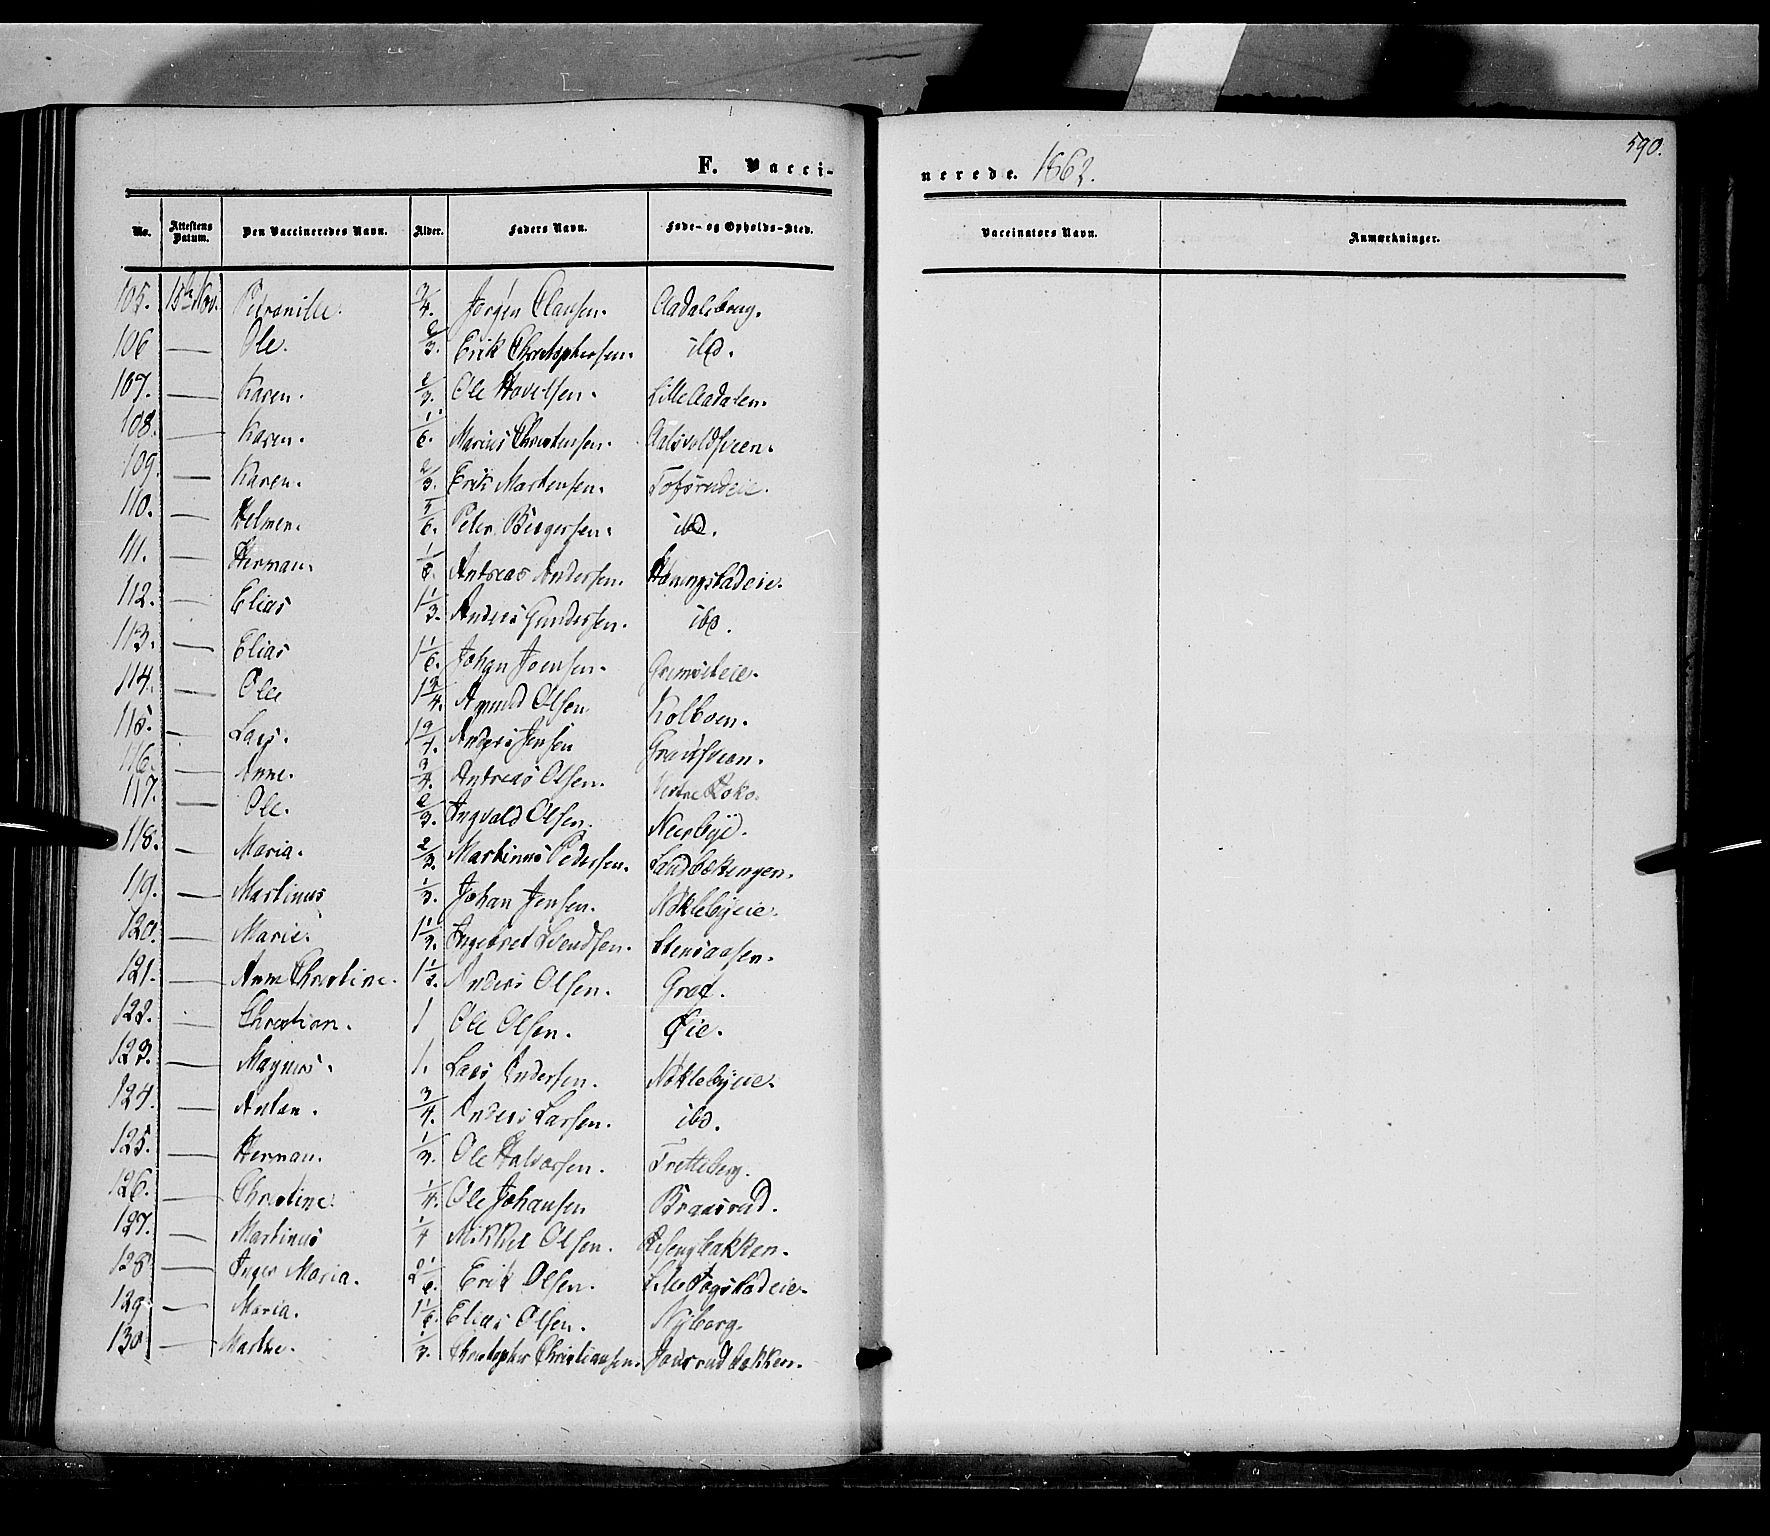 590.
F. Vacci-
nerede. 1862.
No. Attestens Datum. Den Vaccineredes Navn. Alder. Faders Navn. Føde- og Opholds-Sted. Vaccinators Navn. Anmærkninger.
105. 15de Nov. Petronille. 3/4. Jørgen Clausen. Aadalsbrug.
106 — Ole. 2/3. Erik Christophersen. ibd.
107. — Karen. 2/3. Ole Hovelsen. Lille Aadalen.
108. — Karen. 1/6. Marius Christensen.
109. — Karen. 2/3. Erik Martensen. Tofsrudeie.
110. — Helmer. 5/6. Peter Birgersen. ibd.
111. — Herman. Andreas Andersen.
112. — Elias 1 1/3. Anders Gundersen. ibd.
113. — Elias 1 1/6. Johan Joensen. Grimsteie.
114. — Ole 1 3/4. Amund Olsen Kolboen.
115. — Lars. 1 3/4. Anders Jensen
116. — Anne. 3/4. Andreas Olsen. Vestre Roko.
117. — Ole. 2/3. Ingvald Olsen.
118. — Maria. 2/3. Martinus Pedersen. Sandbækengen.
119. — Martinus 1/3. Johan Jensen. Nøklebyeie.
120. — Marie. 1 1/3. Ingebret Svendsen. Stensaasen.
121. — Anne Christine. 1 1/3. Anders Olsen. Grøt.
122. — Christian. 1 Ole Olsen. Øie.
123. — Magnus. 1. Lars Andersen. Nøklebyeie.
124. — Anton. 3/4. Anders Larsen. ibd.
125. — Herman. 1/3. Ole Halvorsen. Fretteberg.
126. — Christine. 1/4. Ole Johansen Braasrud.
127. — Martinus 1/4 Mikkel Olsen. Risengbakken.
128 — Inger Maria. 2 1/6. Erik Olsen.
129. — Maria. 1 1/6. Elias Olsen. Nyborg.
130 — Marthe. 1/3. Christopher Christiansen.